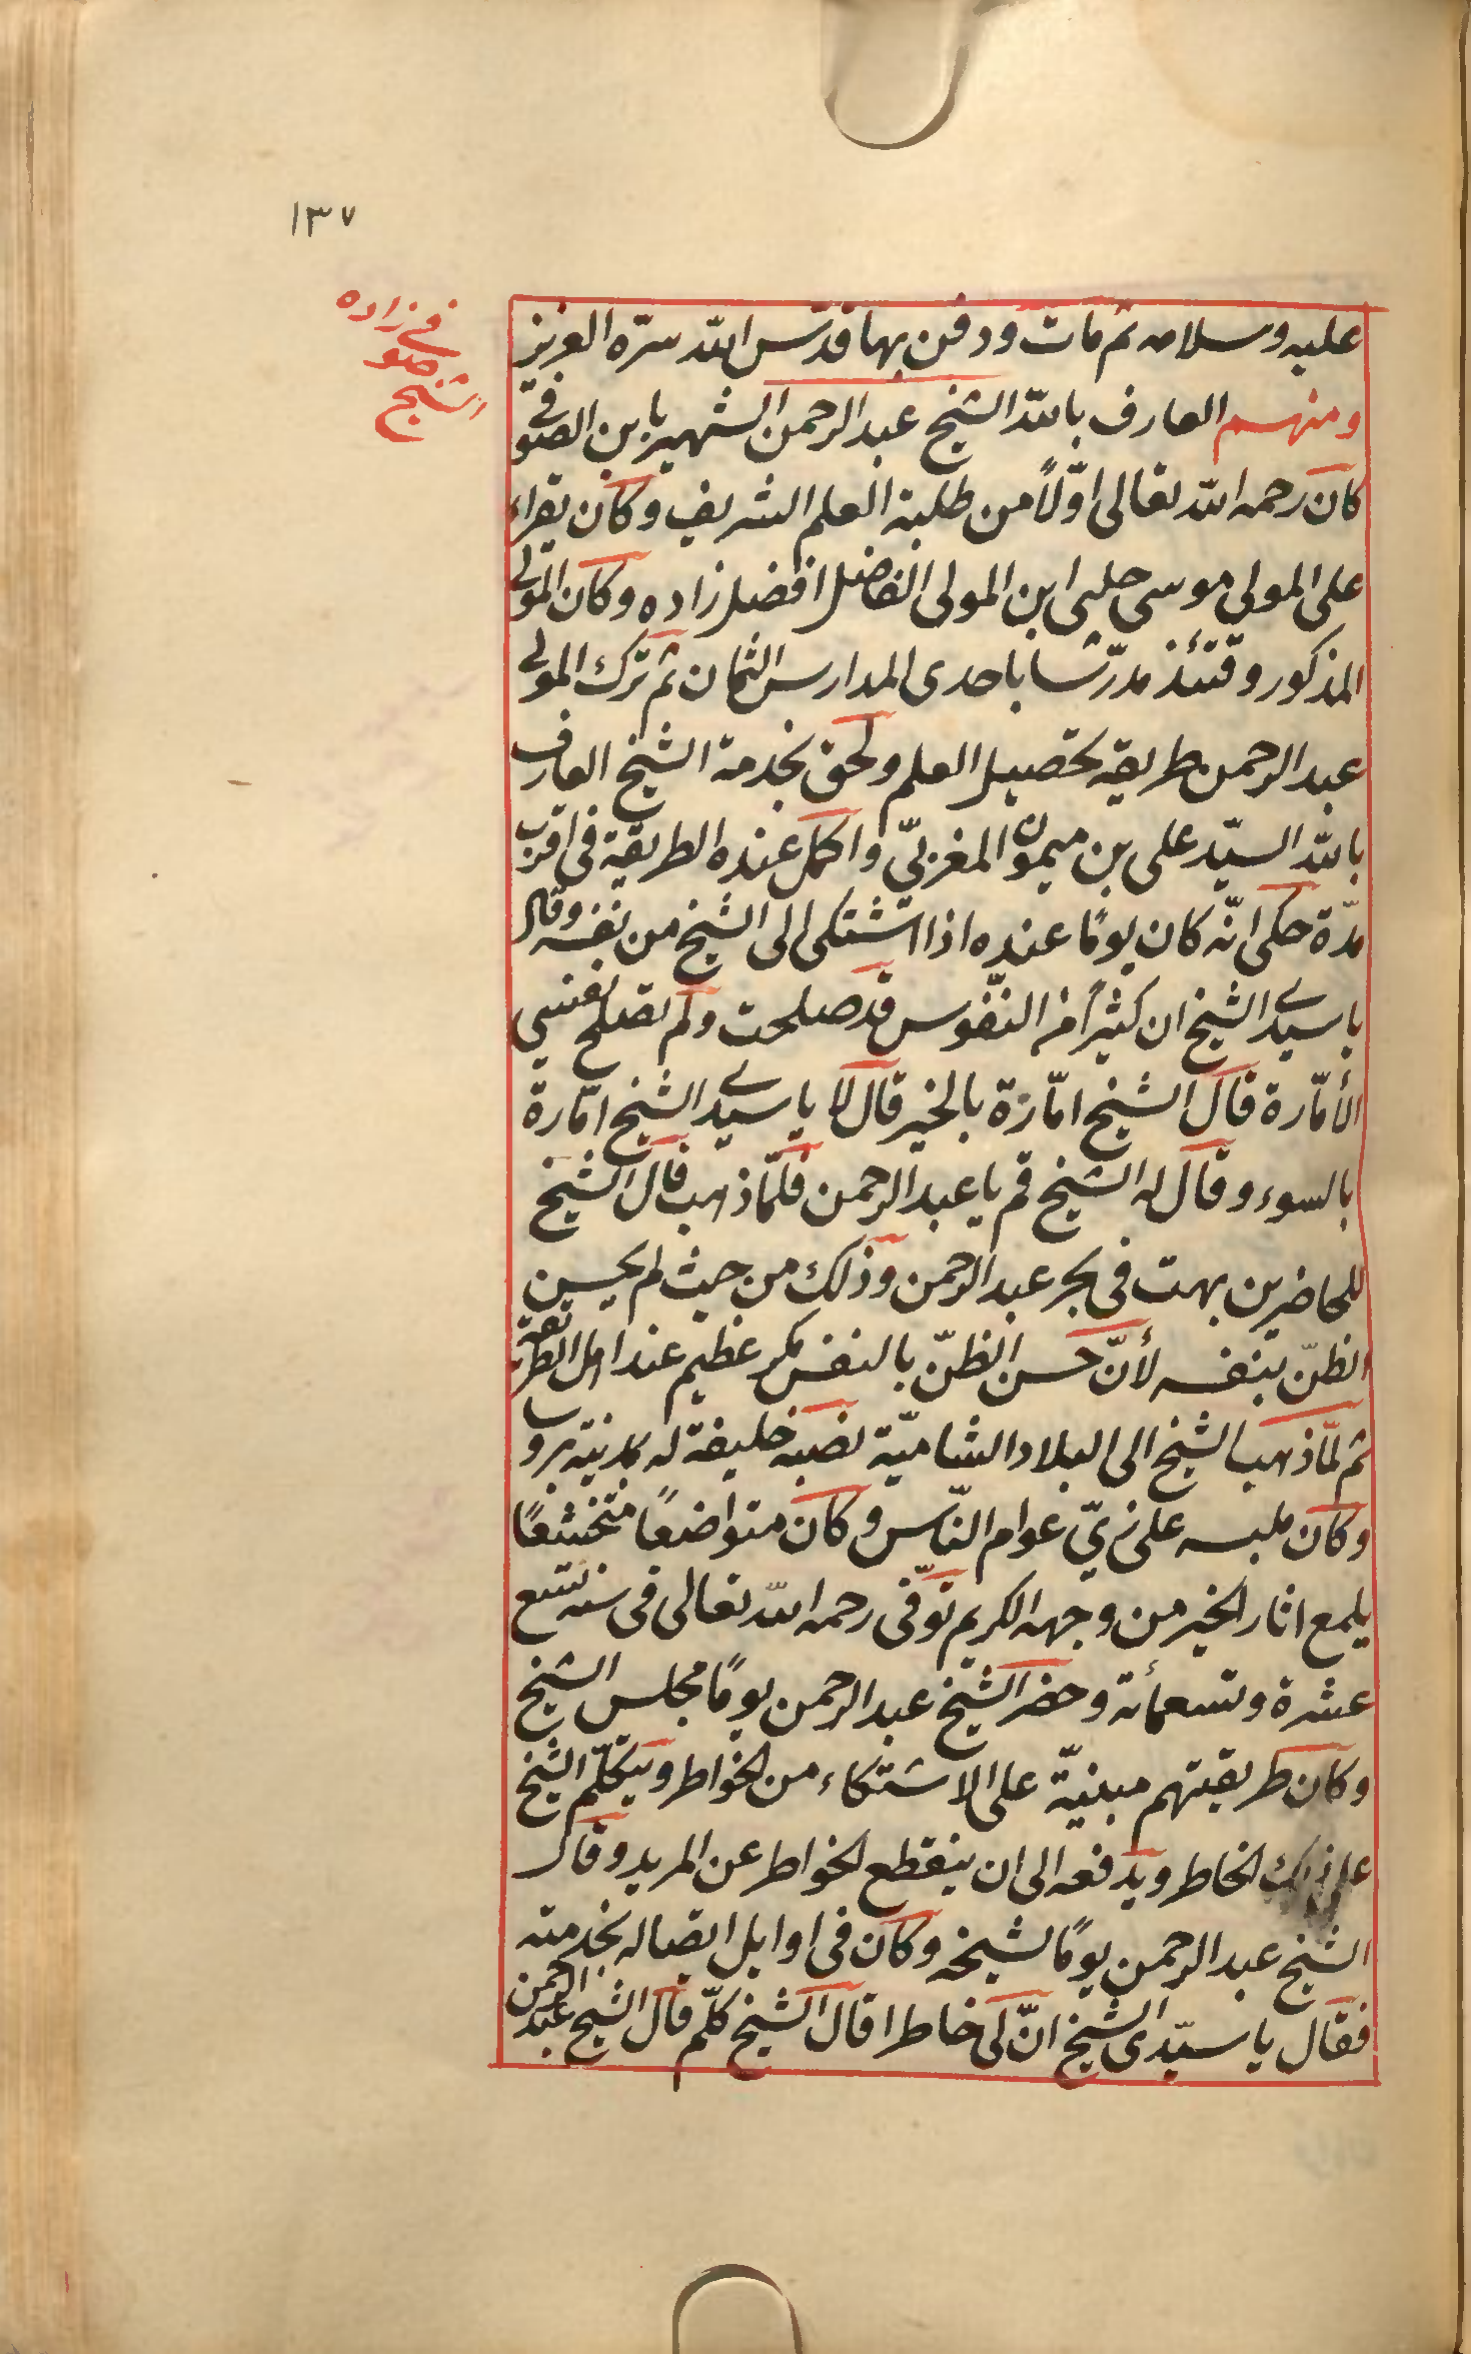 ١٣٧
الشيخ
صو
فى زاده
عليه وسلامه ثم مات ودفن بها قدّس الله سرّه العزيز
ومنهم العارف بالله الشيخ عبد الرحمن الشهير بابن الصوفى
كان رحمه الله تعالى اوّلاً من طلبة العلم الشريف وكان يقراء
على المولى موسى جلبى ابن المولى الفاضل افضل زاده وكان المولى
المذكور وقتئذ مدرّسا باحدى المدارس الثمان ثم ترك المولى
عبد الرحمن طريقة تحصيل العلم ولحق بخدمة الشيخ العارف
بالله السيّد على بن ميمون المغربىّ واكمل عنده الطريقة فى اقرب
مدّة حكى انّه كان يومًا عنده اذا اشتكى الى الشيخ من نفسه وقال
يا سيدى الشيخ ان كثيرًا من النفوس قد صلحت ولم تصلح نفسي
الأمّارة قال الشيخ امّارة بالخير قال لا يا سيدى الشيخ امّارة
بالسوء وقال له الشيخ قم يا عبد الرحمن فلمّا ذهب قال الشيخ
للحاضرين بهت فى بحر عبد الرحمن وذلك من حيث لم يحسن
الظنّ بنفسه لأنّ حسن الظنّ بالنفس مكر عظيم عند اهل الطريقة
ثم لمّا ذهب الشيخ الى البلاد الشاميّة نصبه خليفة له بمدينة بروسا
وكان ملبسه على زيّ عوام النّاس وكان متواضعًا متخشعًا
يلمع اثار الخير من وجهه الكريم توفّى رحمه الله تعالى فى سنة تسع
عشرة وتسعمأئة وحضر الشيخ عبد الرحمن يومًا مجلس الشيخ
وكان طريقتهم مبنيّة على الاشتكاء من الخواطر ويتكلّم الشيخ
على ذلك الخاطر ويدفعه الى ان ينقطع الخواطر عن المريد وقال
الشيخ عبد الرحمن يومًا لشيخه وكان فى اوايل اتصاله بخدمته
فقال يا سيّدى الشيخ انّ لى خاطرا قال الشيخ كلّم قال الشيخ عبد الرحمن